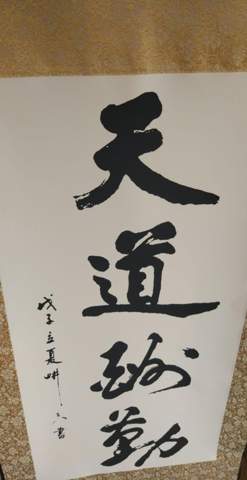 天道酬勤
戊子立夏